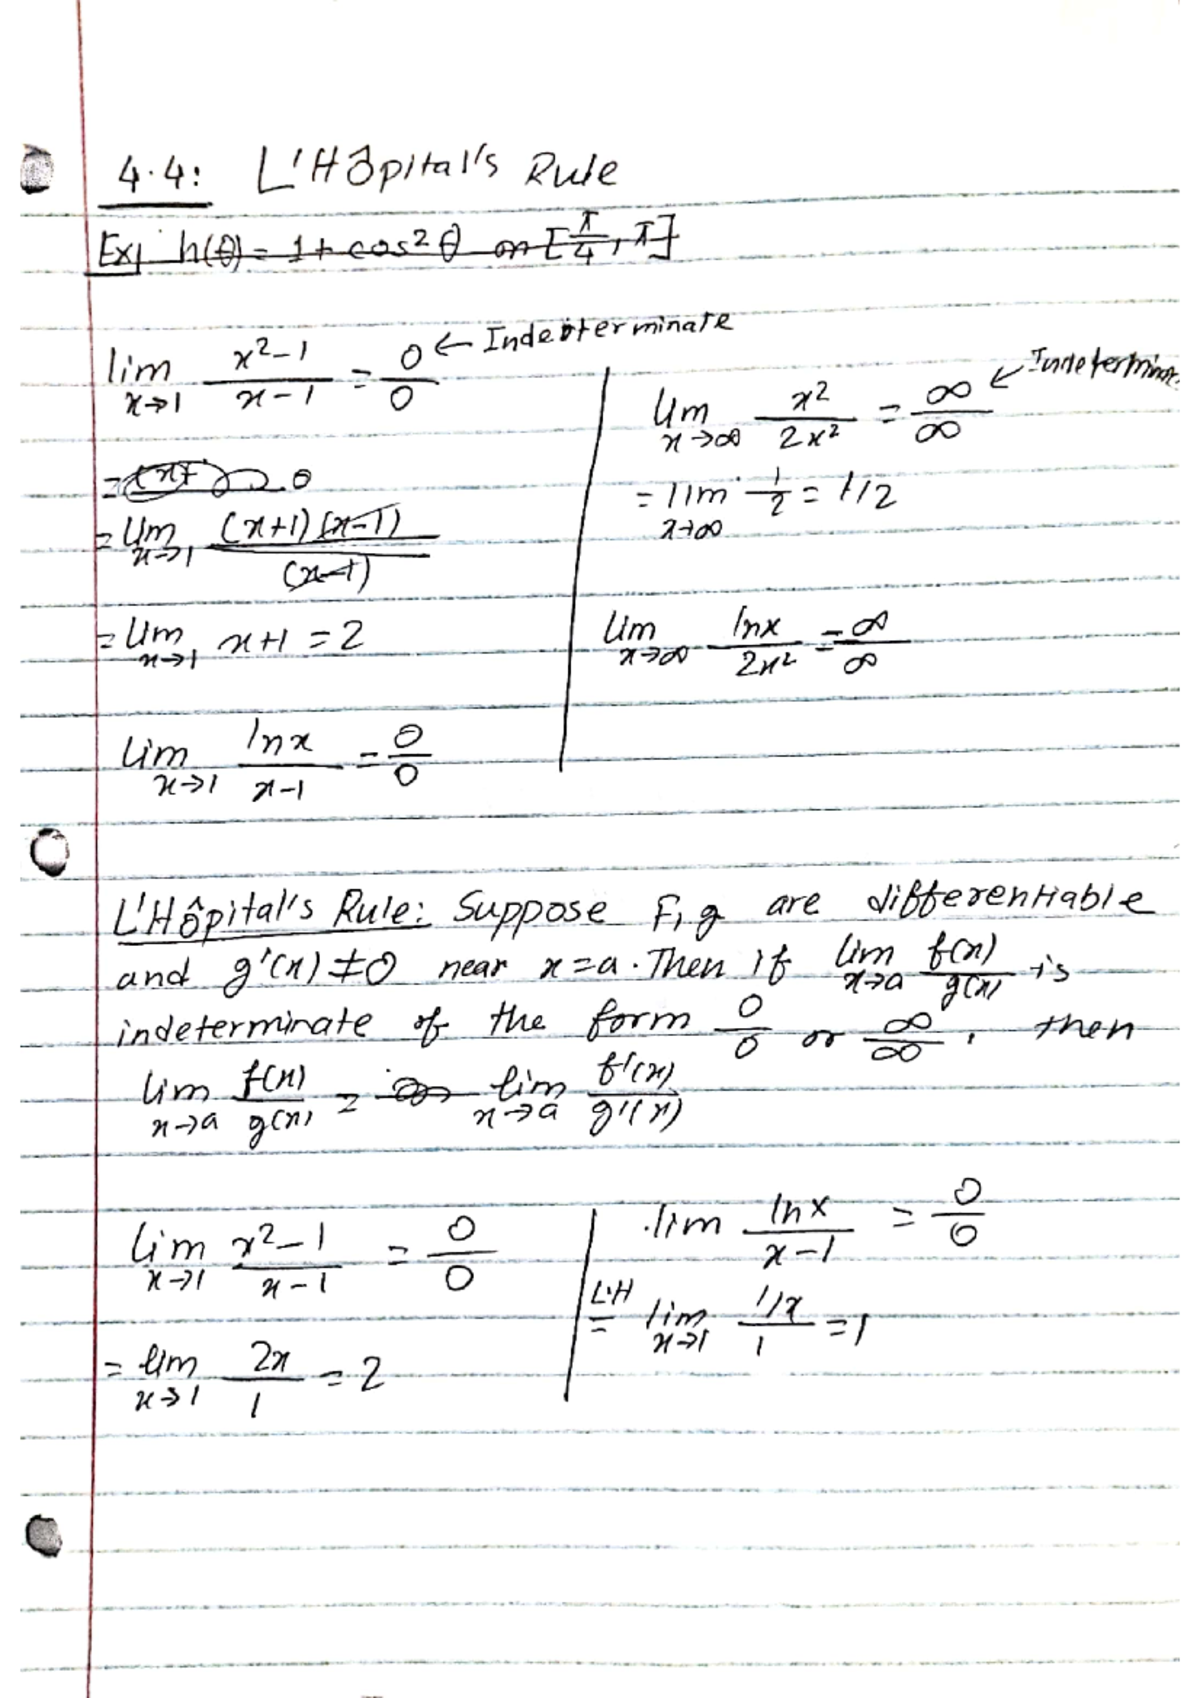 4.4: L'Hôpital's Rule
Ex) h(θ) = 1 + cos²θ on [π/4, π]
lim x→1 (x²-1)/(x-1) = 0/0 ← Indeterminate
= lim x→1 (x+1)(x-1)/(x-1)
= lim x→1 x+1 = 2
lim x→1 lnx/(x-1) = 0/0
lim x→∞ x²/2x² = ∞/∞ ← Indeterminate
= lim x→∞ 1/2 = 1/2
lim x→∞ lnx/2x² = ∞/∞
L'Hôpital's Rule: Suppose F, g are differentiable
and g'(x) ≠ 0 near x = a. Then if lim x→a f(x)/g(x) is
indeterminate of the form 0/0 or ∞/∞, then
lim x→a f(x)/g(x) = lim x→a f'(x)/g'(x)
lim x→1 (x²-1)/(x-1) = 0/0
= lim x→1 2x/1 = 2
lim lnx/(x-1) = 0/0
L'H = lim x→1 (1/x)/1 = 1